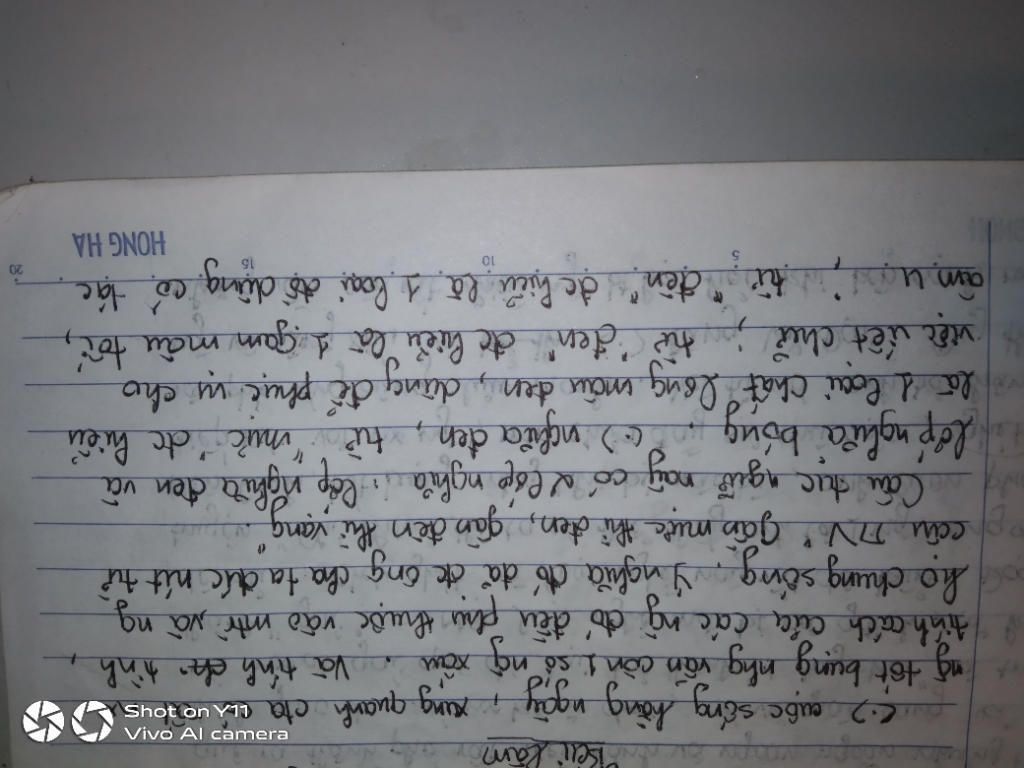 Bài làm
(.) cuộc sống hằng ngày, xung quanh cta có rất
ng tốt bụng nhg vẫn còn 1 số ng xấu. Và tính tình,
tính cách của các ng đó đều phụ thuộc vào mtr và ng
họ chung sống. Ý nghĩa đó đã đc ông cha ta đúc rút từ
câu TN "Gần mực thì đen, gần đèn thì rạng"
Câu tục ngữ này có 2 lớp nghĩa: lớp nghĩa đen và
lớp nghĩa bóng. (.) nghĩa đen, từ "mực" đc hiểu
là 1 loại chất lỏng màu đen, dùng để phục vụ cho
việc viết chữ, từ "đen" đc hiểu là 1 gam màu tối,
âm u, từ "đèn" đc hiểu là 1 loại đồ dùng có tác
5 10 15 20
HONG HA
Shot on Y11
Vivo AI camera